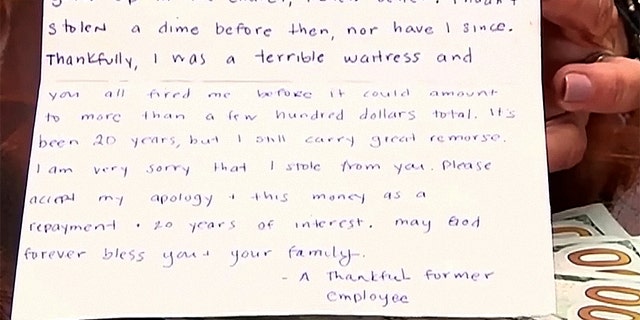 stolen a dime before then, nor have I since.
Thankfully, I was a terrible waitress and
you all fired me before it could amount
to more than a few hundred dollars total. It's
been 20 years, but I still carry great remorse.
I am very sorry that I stole from you. Please
accept my apology + this money as a
repayment + 20 years of interest. may God
forever bless you + your family.
- A Thankful former
employee